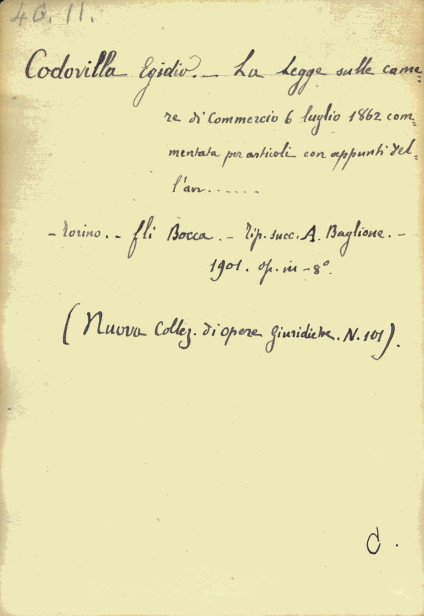 46. 11.
Codovilla Egidio. - La legge sulle came=
re di Commercio 6 luglio 1862 com=
mentata per articoli con appunti del=
l'av......
- Torino. - fli Bocca. - Tip. succ. A. Baglione. -
1901. op. in - 8°.
(Nuova Collez. di opere giuridiche. N. 101).
C.